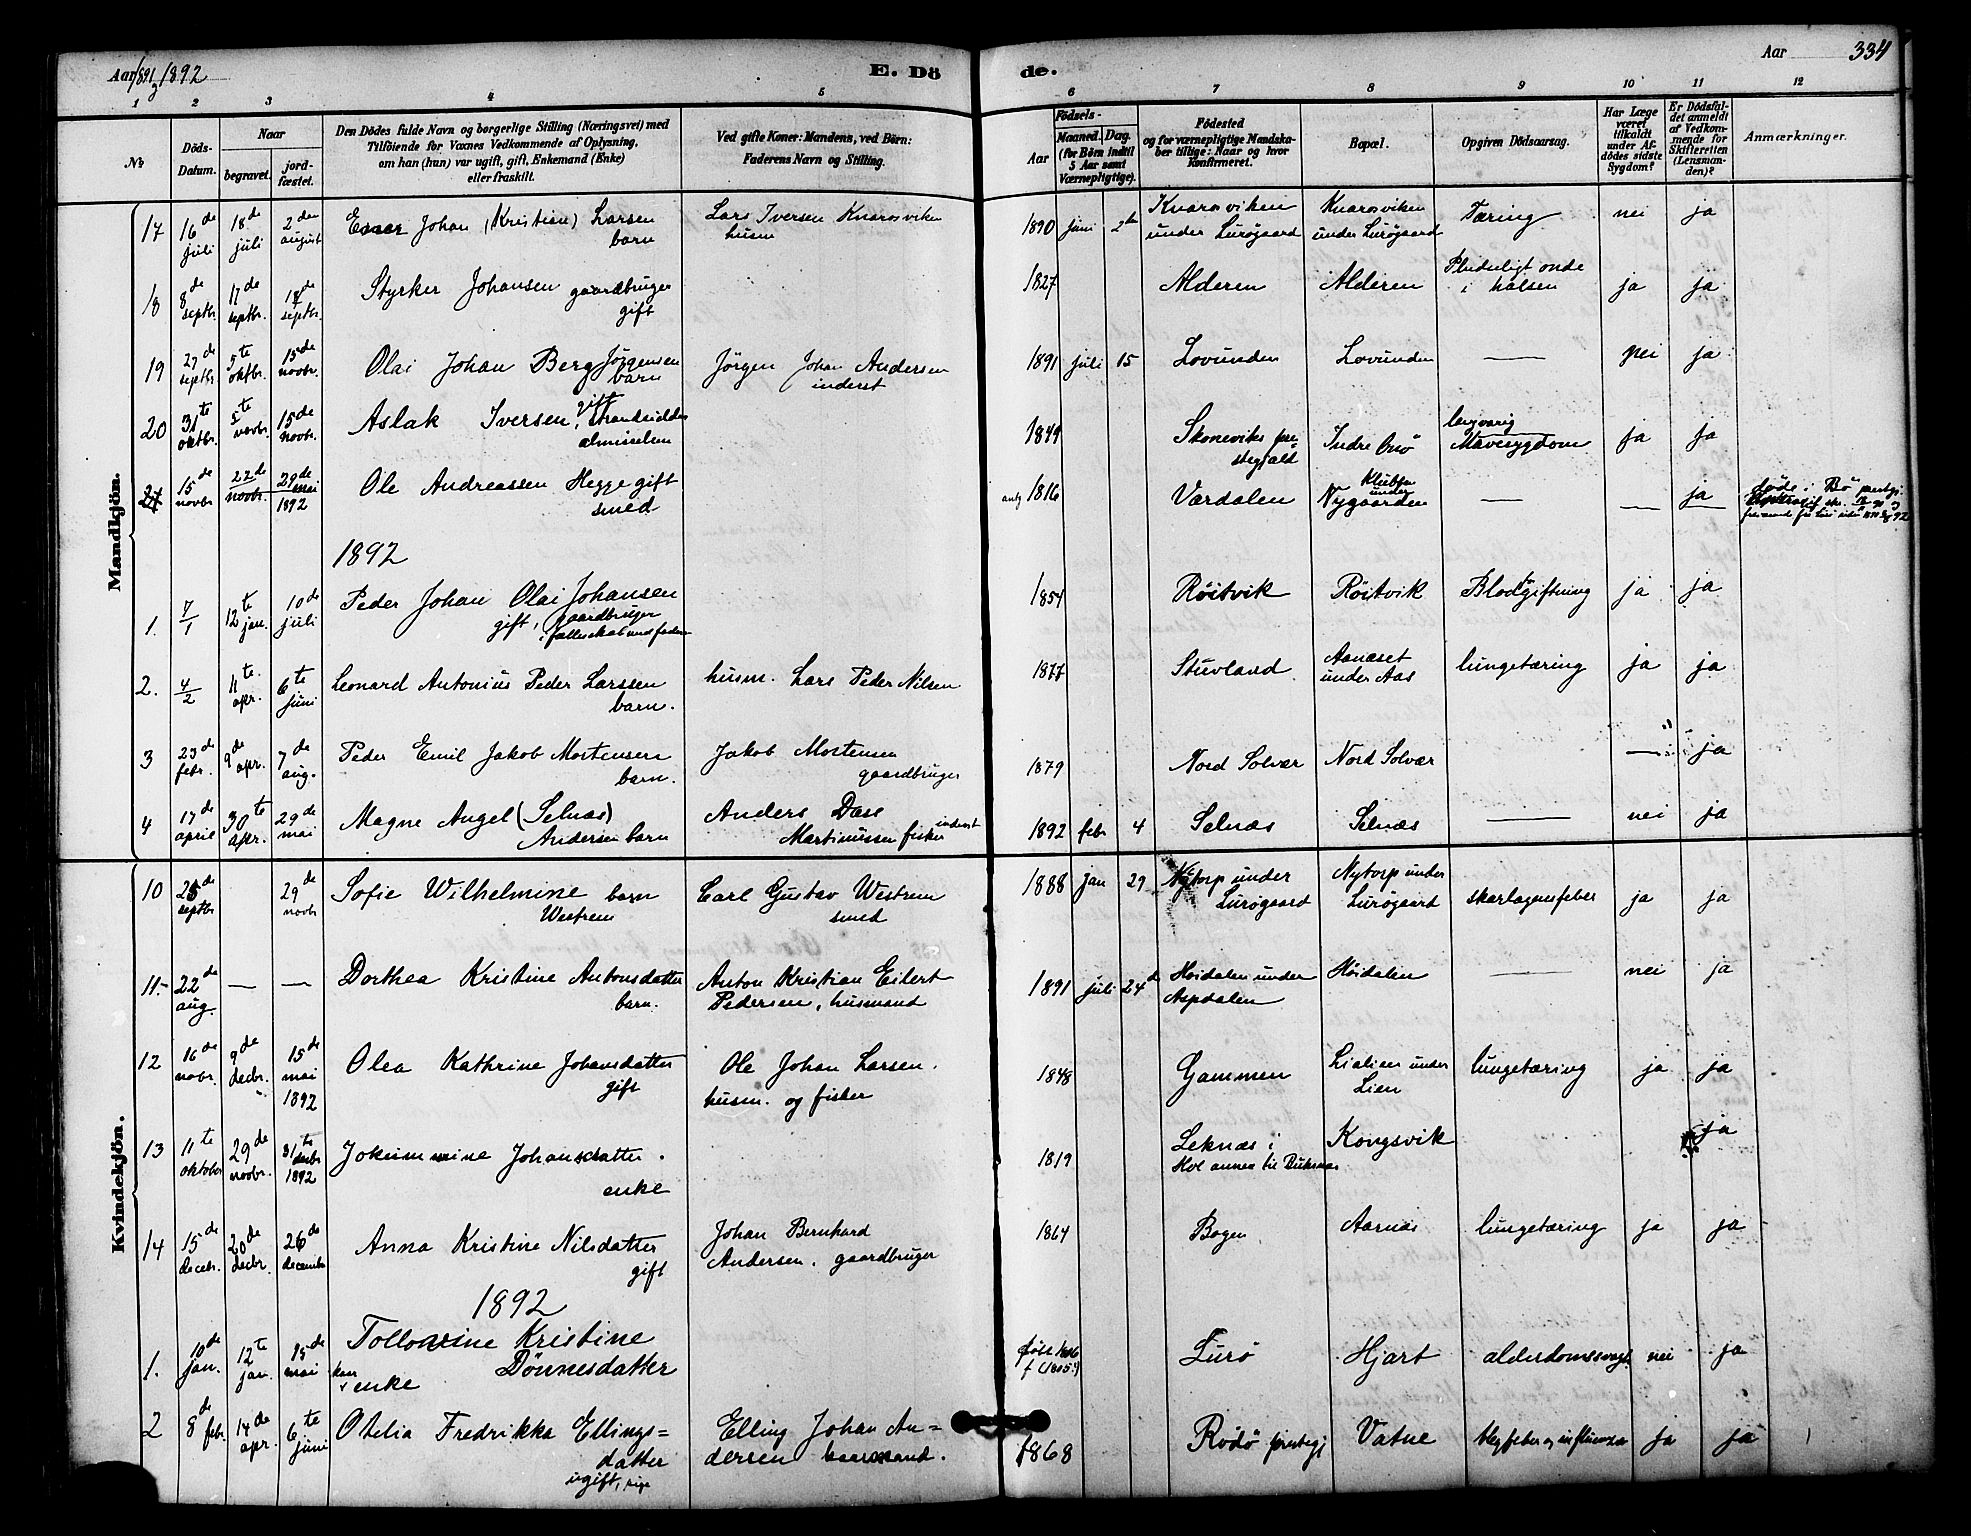 Aar 1891 og 1892
E. Dö
de.
Aar
334
1 2 3 4 5 6 7 8 9 10 11 12
No
Döds-Datum.
Naar
begravet.
jordfæstet.
Den Dödes fulde Navn og borgerlige Stilling (Næringsvei) med
Tilföiende for Voxnes Vedkommende af Oplysning,
om han (hun) var ugift, gift, Enkemand (Enke)
eller fraskilt.
Ved gifte Koner: Mandens, ved Börn:
Faderens Navn og Stilling.
Födsels-
Aar
Maaned. Dag.
(for Börn indtil
5 Aar samt
Værnepligtige).
Födested
og for værnepligtige Mandskaber tillige: Naar og hvor
Konfirmeret.
Bopæl.
Opgiven Dödsaarsag.
Har Læge
været
tilkaldt
under Afdödes sidste
Sygdom?
Er Dödsfaldet anmeldt
af Vedkommende for
Skifteretten
(Lensmanden)?
Anmærkninger.
Mandkjön.
17 16de juli 18de juli 2den august Johan (Kristian) Larsen barn Lars Iversen Knarosviken husm 1890 juni 2den Knarosviken under Lurøgaard Knarosviken under Lurøgaard Tæring nei ja
18 8de septbr. 11de septbr. 18de septbr. Styrker Johansen gaardbruger gift 1827 Alderen Alderen Pludseligt onde i halsen ja ja
19 27de septbr. 5te oktbr. 15de novbr. Olai Johan Berg Jörgensen barn Jörgen Johan Andersen inderst 1891 juli 15 Lovunden Lovunden — nei ja
20 31te oktbr. 5te novbr. 15de novbr. Aslak Iversen, gift, strandsidder almisselem 1849 Skoneviks prestegjæld Indre Onø langvarig Mavesygdom ja ja
21 15de novbr. 22de novbr. 29de mai 1892 Ole Andreassen Hegge gift smed antg 1816 Værdalen Klubben under Nygaarden — — ja döde i Bö prestgj.
1892
1. 7/1 12te jan. 10de juli Peder Johan Olai Johansen gift, gaardbruger i fællesskab med fader 1854 Röitvik Röitvik Blodgiftning ja ja
2. 4/2 11te apr. 6te juni Leonard Antonius Peder Larssen barn. husm. Lars Peder Nilsen 1877 Stuvland Aanæset under Aas lungetæring ja ja
3 23de febr. 9de apr. 7de aug. Peder Emil Jakob Mortensen barn. Jakob Mortensen gaardbruger 1879 Nord Solvær Nord Solvær — ja
4 17de april 30te apr. 29de mai Magne Angel (Selnæs) Andersen barn Anders Dase Martinussen fisker inderst 1892 febr 4 Selnæs Selnæs — nei ja
Kvindekjön.
10 25de septbr 29de novbr Sofie Wilhelmine barn Westrem Carl Gustav Westrem smed 1888 jan 29 Nytorp under Lurøgaard Nytorp under Lurøgaard skarlagensfeber ja ja
11.- 22de aug. — — Dorthea Kristine Antonsdatter barn. Anton Kristian Eilert Pedersen, husmand 1891 juli 24de Høidalen under Aspdalen Høidalen — nei ja
12 16de nobr. 9de decbr. 15de mai 1892 Olea Kathrine Johansdatter gift Ole Johan Larsen. husm. og fisker 1848 Gammen Lialien under Lien lungetæring ja ja
13 11te oktober 29de novbr. 31te 1892 Jokummine Johansdatter. enke 1819 Leknæs i Hol annex til Buksnæs Kongsvik ja
14 15de decbr. 20de decbr. 26de december Anna Kristine Nilsdatter gift Johan Bernhard Andersen, gaardbruger 1864 Bogen Aarnæs lungetæring ja ja
1892
1. 10de jan. 12te jan. 15de mai Tollovine Kristine Dönnesdatter enke Lurö Hjart alderdomssvagh. nei ja
2 8de febr 14de apr. 6te juni Otelia Fredrikka Ellings=datter ugift, Elling Johan An=dersen baasmand. 1868 Rödö prestegj Vatne og influensa ja ja